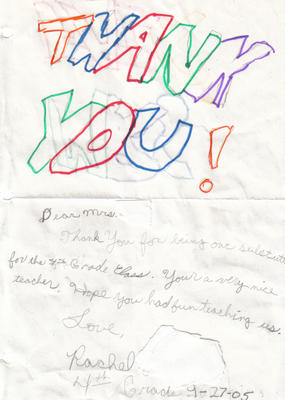 THANK
YOU!
Dear Mrs.
Thank You for being our substitute
for the 4th Grade Class. Your a very nice
teacher. Hope you had fun teaching us.
Love,
Rachel
4th Grade 9-27-05